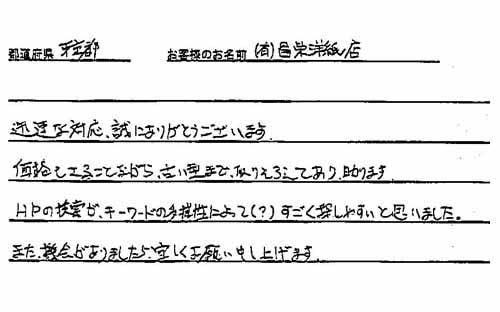 都道府県 東京都 お客様のお名前 (有)昌栄洋紙店
迅速な対応、誠にありがとうございます。
価格もさることながら、古い型まで、取りそろえてあり、助ります。
HPの検索が、キーワードの多様性によって(?)すごく探しやすいと思いました。
また、機会がありましたら、宜しくお願い申し上げます。